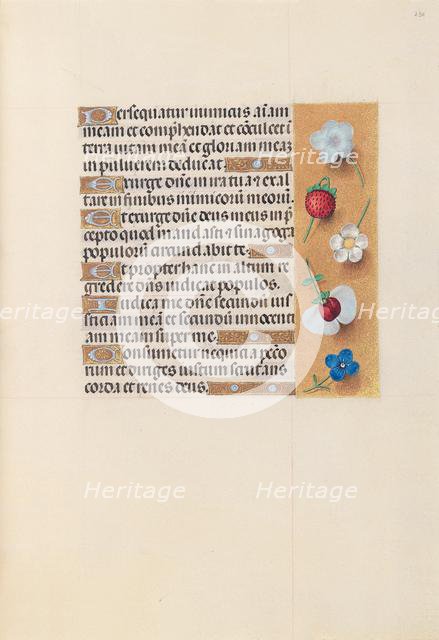 230
Persequatur inimicus aīam
meam et comp̄hendat et cōculcet ī
terra uitam meā et gloriam meaȝ
in puluerem deducat.
Exurge dn̄e in ira tua et exal
tare in finibus inimicorū meorū.
Et exurge dn̄e deus meus in p̄
cepto quod mandasti et sinagoga
populorū circūdabit te.
Et propter hanc in altum re
gredere dn̄s iudicat populos.
Iudica me dn̄e secundū ius
ticiam meā et secundū innocenti
am meam super me.
Consumetur nequicia pecco
rum et diriges iustum scrutans
corda et renes deus.
Heritage Heritage
Heritage Heritage
Heritage Heritage